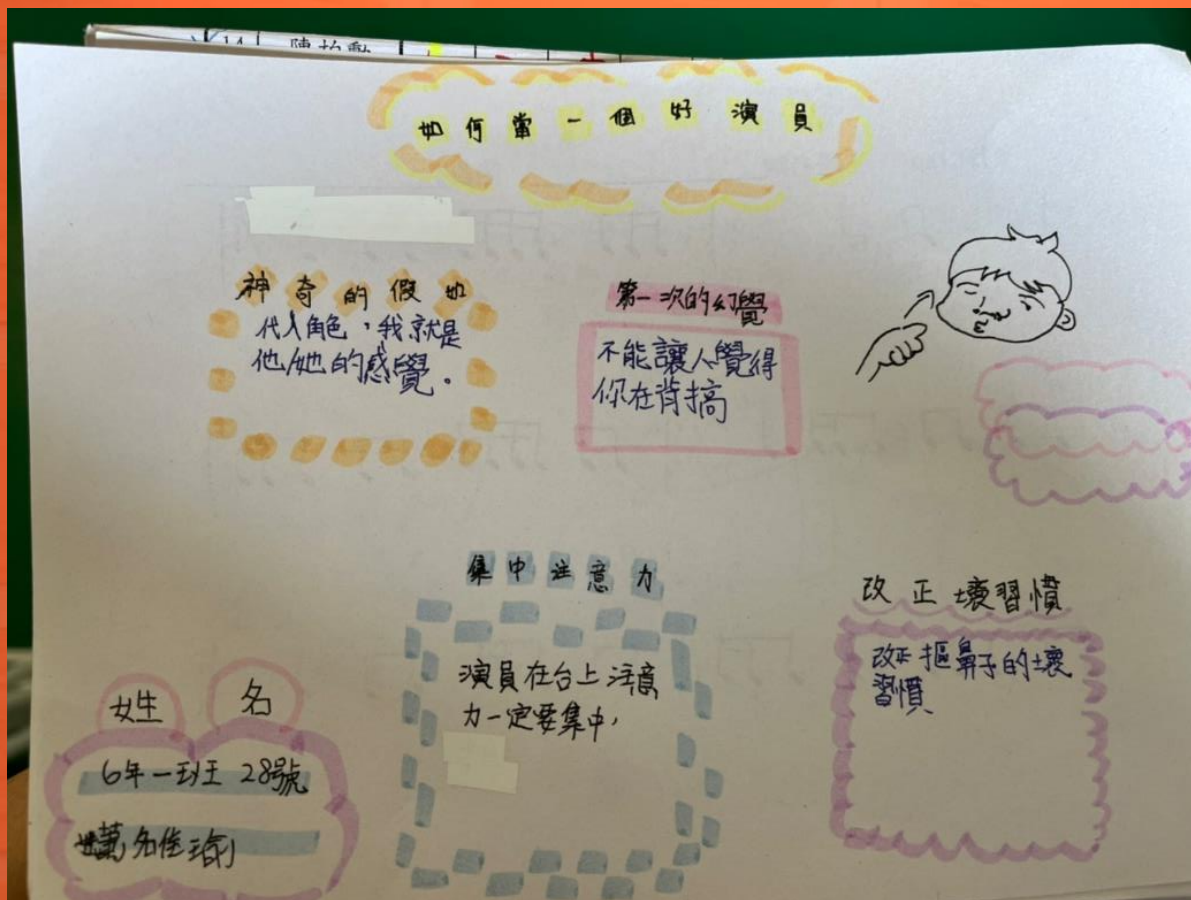 14 陳柏勳
如何當一個好演員
神奇的假如
代入角色,我就是
他/她的感覺。
第一次的幻覺
不能讓人覺得
你在背搞
集中注意力
演員在台上注意
力一定要集中,
改正壞習慣
改正摳鼻子的壞
習慣
姓 名
6年一班 28號